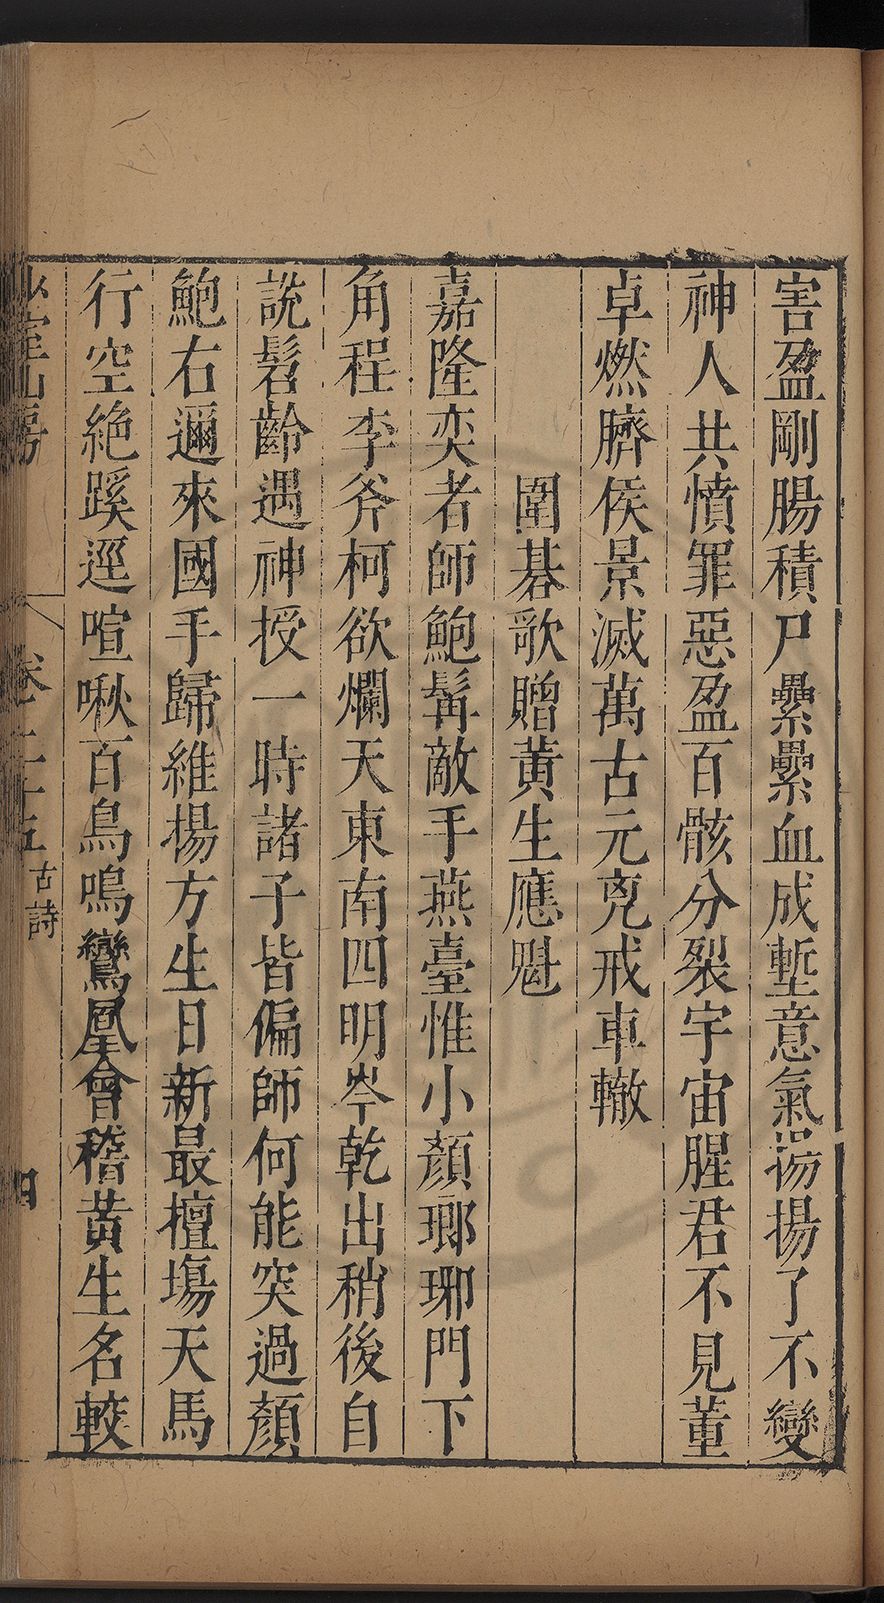 害盈剛腸積尸纍纍血成塹意氣揚揚了不變
神人共憤罪惡盈百骸分裂宇宙腥君不見董
卓燃臍侯景滅萬古元兇戒車轍
圍碁歌贈黃生應魁
嘉隆奕者師鮑髯敵手燕臺惟小顏瑯琊門下
角程李斧柯欲爛天東南四明岑乾出稍後自
說髫齡遇神授一時諸子皆偏師何能突過顏
鮑右邇來國手歸維揚方生日新最擅塲天馬
行空絶蹊逕喧啾百鳥鳴鸞凰會稽黃生名較
山房
卷二十五 古詩
四